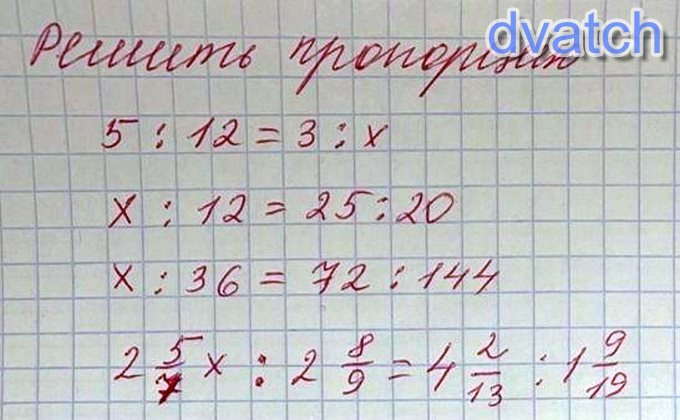 dvatch
Решить пропорции
5 : 12 = 3 : x
x : 12 = 25 : 20
x : 36 = 72 : 144
2 5/7 x : 2 8/9 = 4 2/13 : 1 9/19